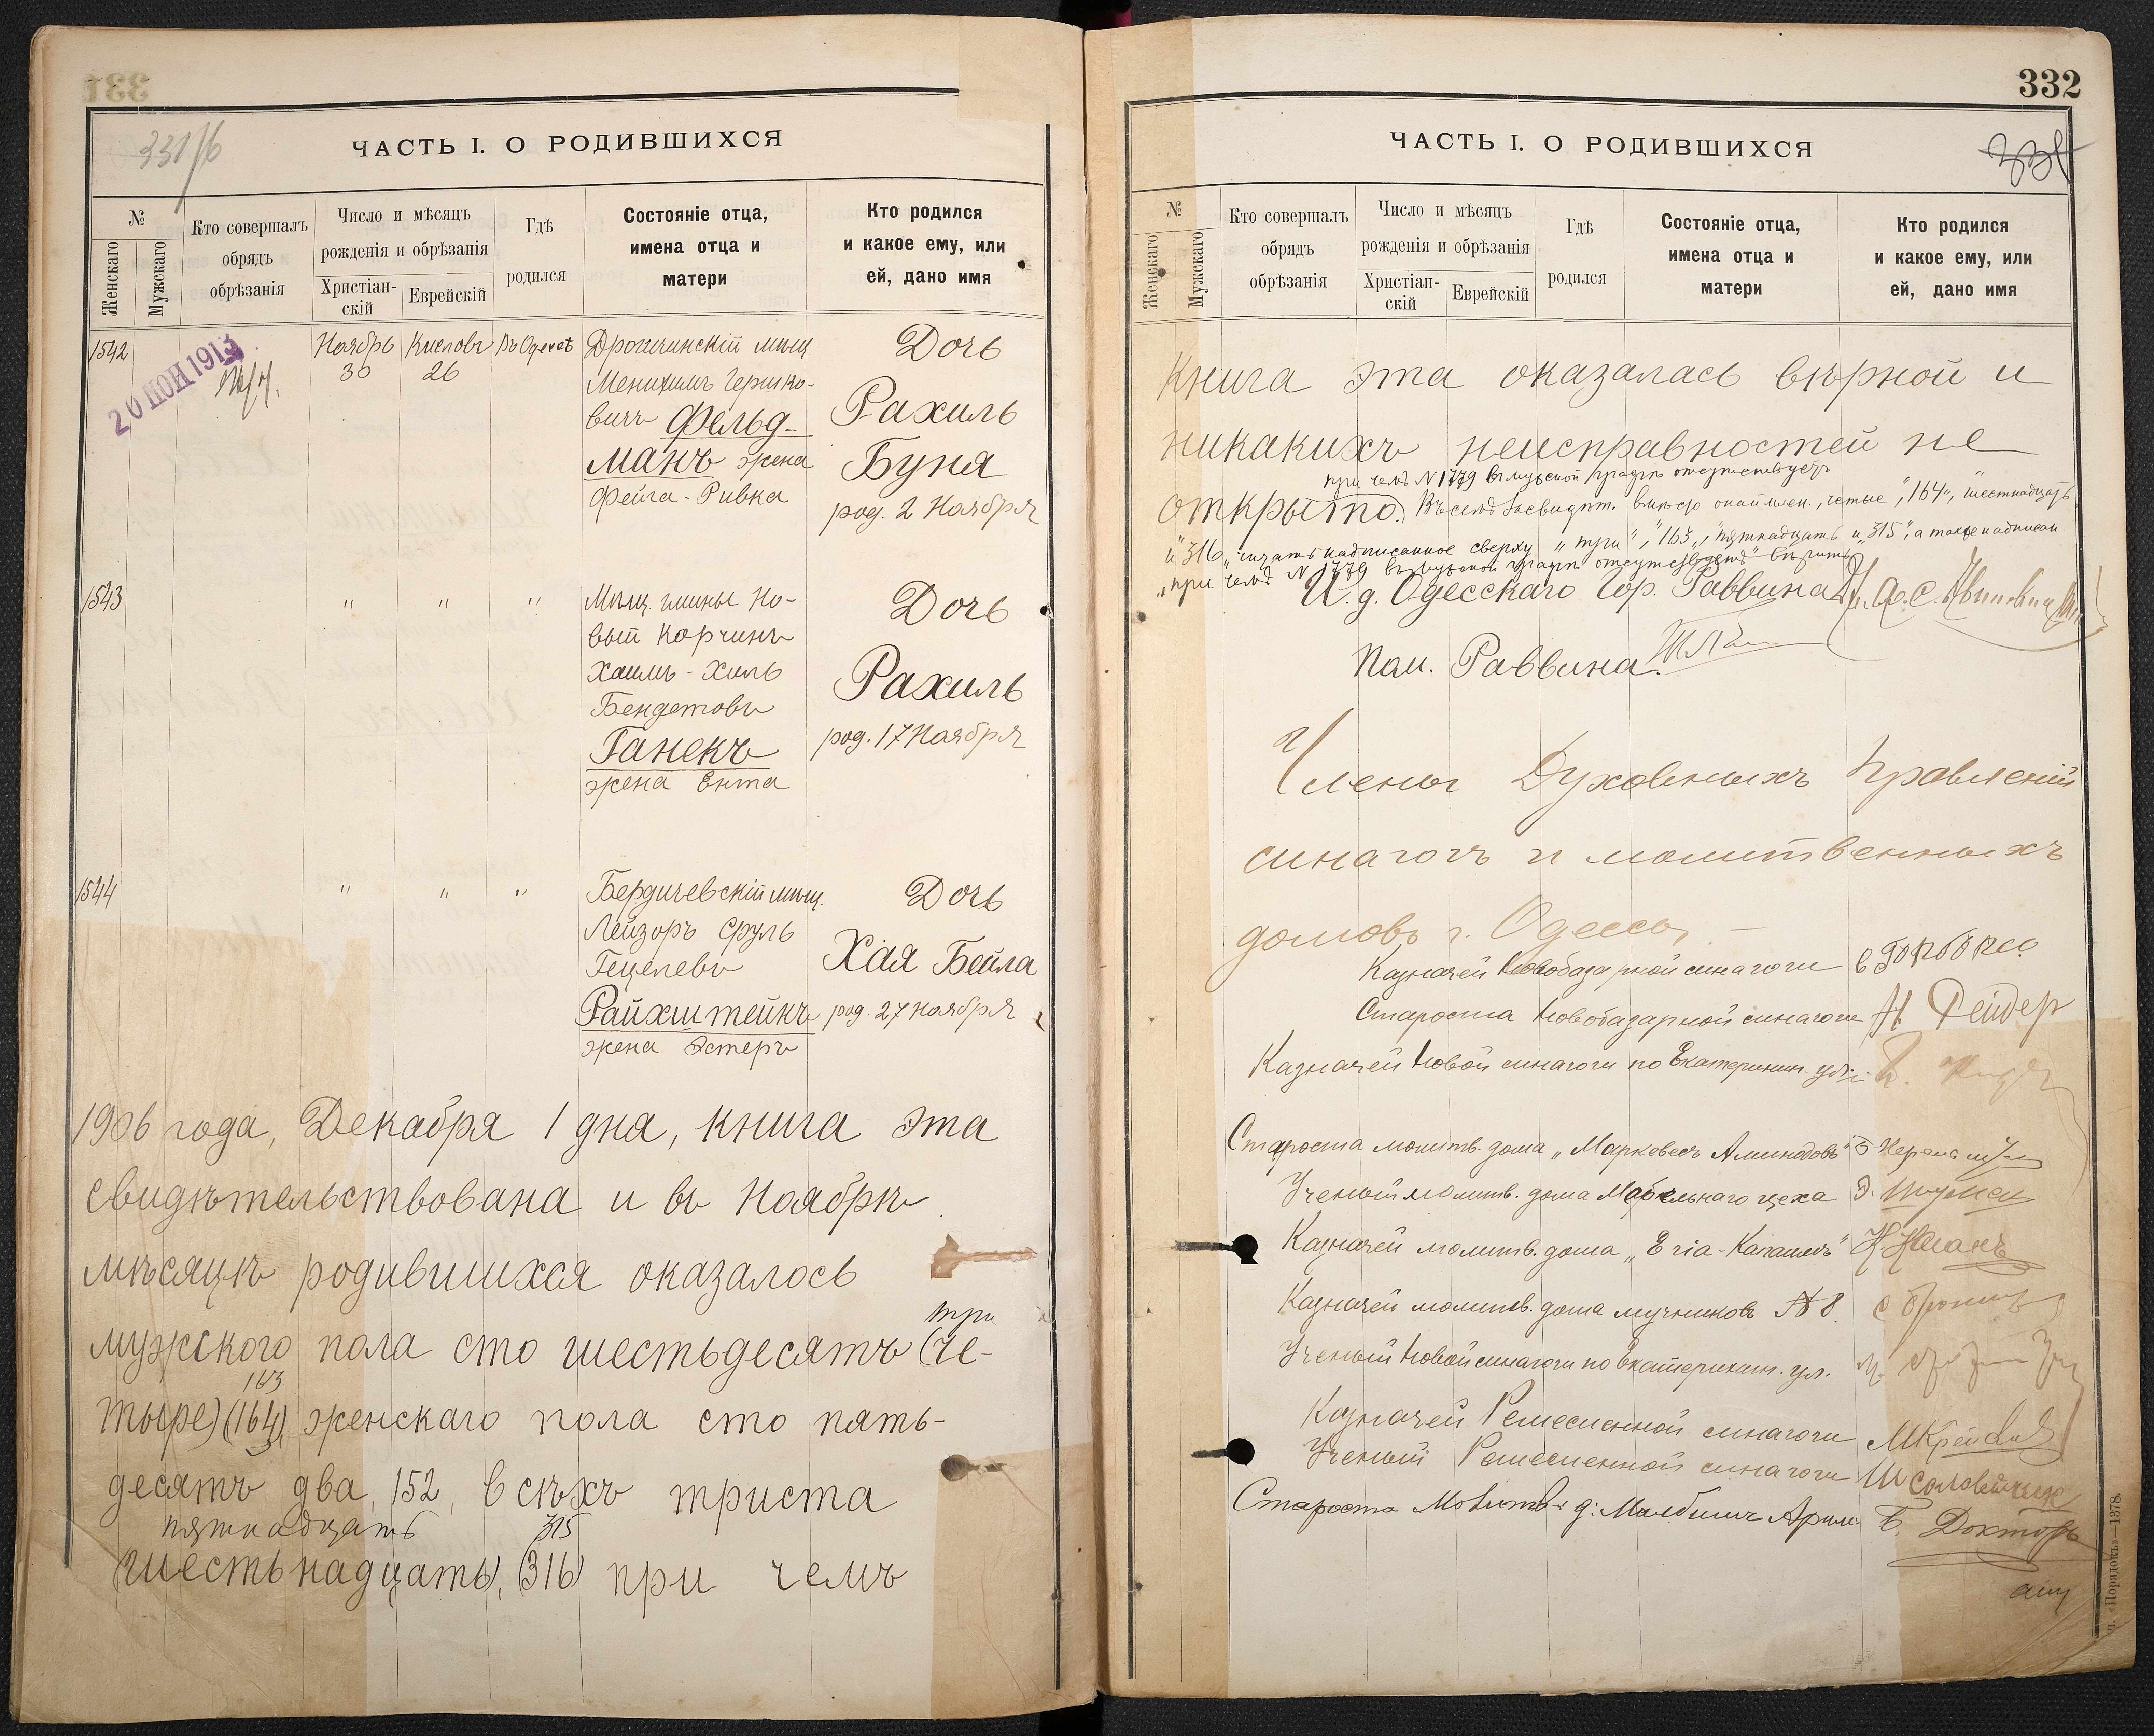 331
331/б
ЧАСТЬ I. О РОДИВШИХСЯ
№
Женскаго
Мужскаго
Кто совершалъ
обрядъ
обрѣзанія
Число и мѣсяцъ
рожденія и обрѣзанія
Христіан-
скій
Еврейскій
Гдѣ
родился
Состояніе отца,
имена отца и
матери
Кто родился
и какое ему, или
ей, дано имя
1542
20 ІЮН 1913
Ноябрь
30
Кислевъ
26
Въ Одессѣ
Дрогичинскій мѣщ
Менихимъ Гершко-
вичъ Фельд-
манъ жена
Фейга-Ривка
Дочь
Рахиль
Буня
род. 2 Ноября
1543
" " "
Мѣщ. гмины Но-
вый Корчинъ
Хаимъ-Хиль
Бендетовъ
Ганекъ
жена Ента
Дочь
Рахиль
род. 17 Ноября
1544
" " "
Бердичевскій мѣщ.
Лейзоръ Сруль
Гецелевъ
Райхштейнъ
жена Эстеръ
Дочь
Хая Бейла
род. 27 ноября
1906 года, Декабря 1 дня, книга эта
свидѣтельствована и въ Ноябрѣ
мѣсяцѣ родившихся оказалось
три
мужского пола сто шестьдесятъ (че-
163
тыре) (164), женскаго пола сто пять-
десятъ два, 152, всѣхъ триста
пятнадцать 315
(шестьнадцать), (316) при чемъ
332
ЧАСТЬ I. О РОДИВШИХСЯ
№
Женскаго
Мужскаго
Кто совершалъ
обрядъ
обрѣзанія
Число и мѣсяцъ
рожденія и обрѣзанія
Христіан-
скій
Еврейскій
Гдѣ
родился
Состояніе отца,
имена отца и
матери
Кто родился
и какое ему, или
ей, дано имя
Книга эта оказалась вѣрной и
никакихъ неисправностей не
при чемъ № 1779 въ мужской графѣ отсутствуетъ
открыто. Въ семъ засвидѣт. вмѣсто окаймлен. "четыре", "164", "шестнадцать"
и "316" читать надписанное сверху "три", "163", "пятнадцать" и "315", а также надписан.
"при чемъ № 1779 въ мужской графѣ отсутствуетъ" вѣрить
И. д. Одесскаго Гор. Раввина
Пом. Раввина
Члены Духовныхъ Правленій
синагогъ и молитвенныхъ
домовъ г. Одессы
Казначей Новобазарной синагоги
Староста Новобазарной синагоги Н Рейдер
Казначей Новой синагоги по Екатеринин. ул.
Староста молитв. дома "Маркевесъ Аминодовъ"
Ученый молитв. дома Мебельнаго цеха
Казначей молитв. дома "Егіа-Капаимъ"
Казначей молитв. дома мучниковъ № 8.
Ученый Новой синагоги по Екатеринин. ул.
Казначей Ремесленной синагоги
Ученый Ремесленной синагоги Ш Соловейчик
Староста Молитв. д. Малбишъ Арим. Б. Докторъ
«Порядокъ»—1378.